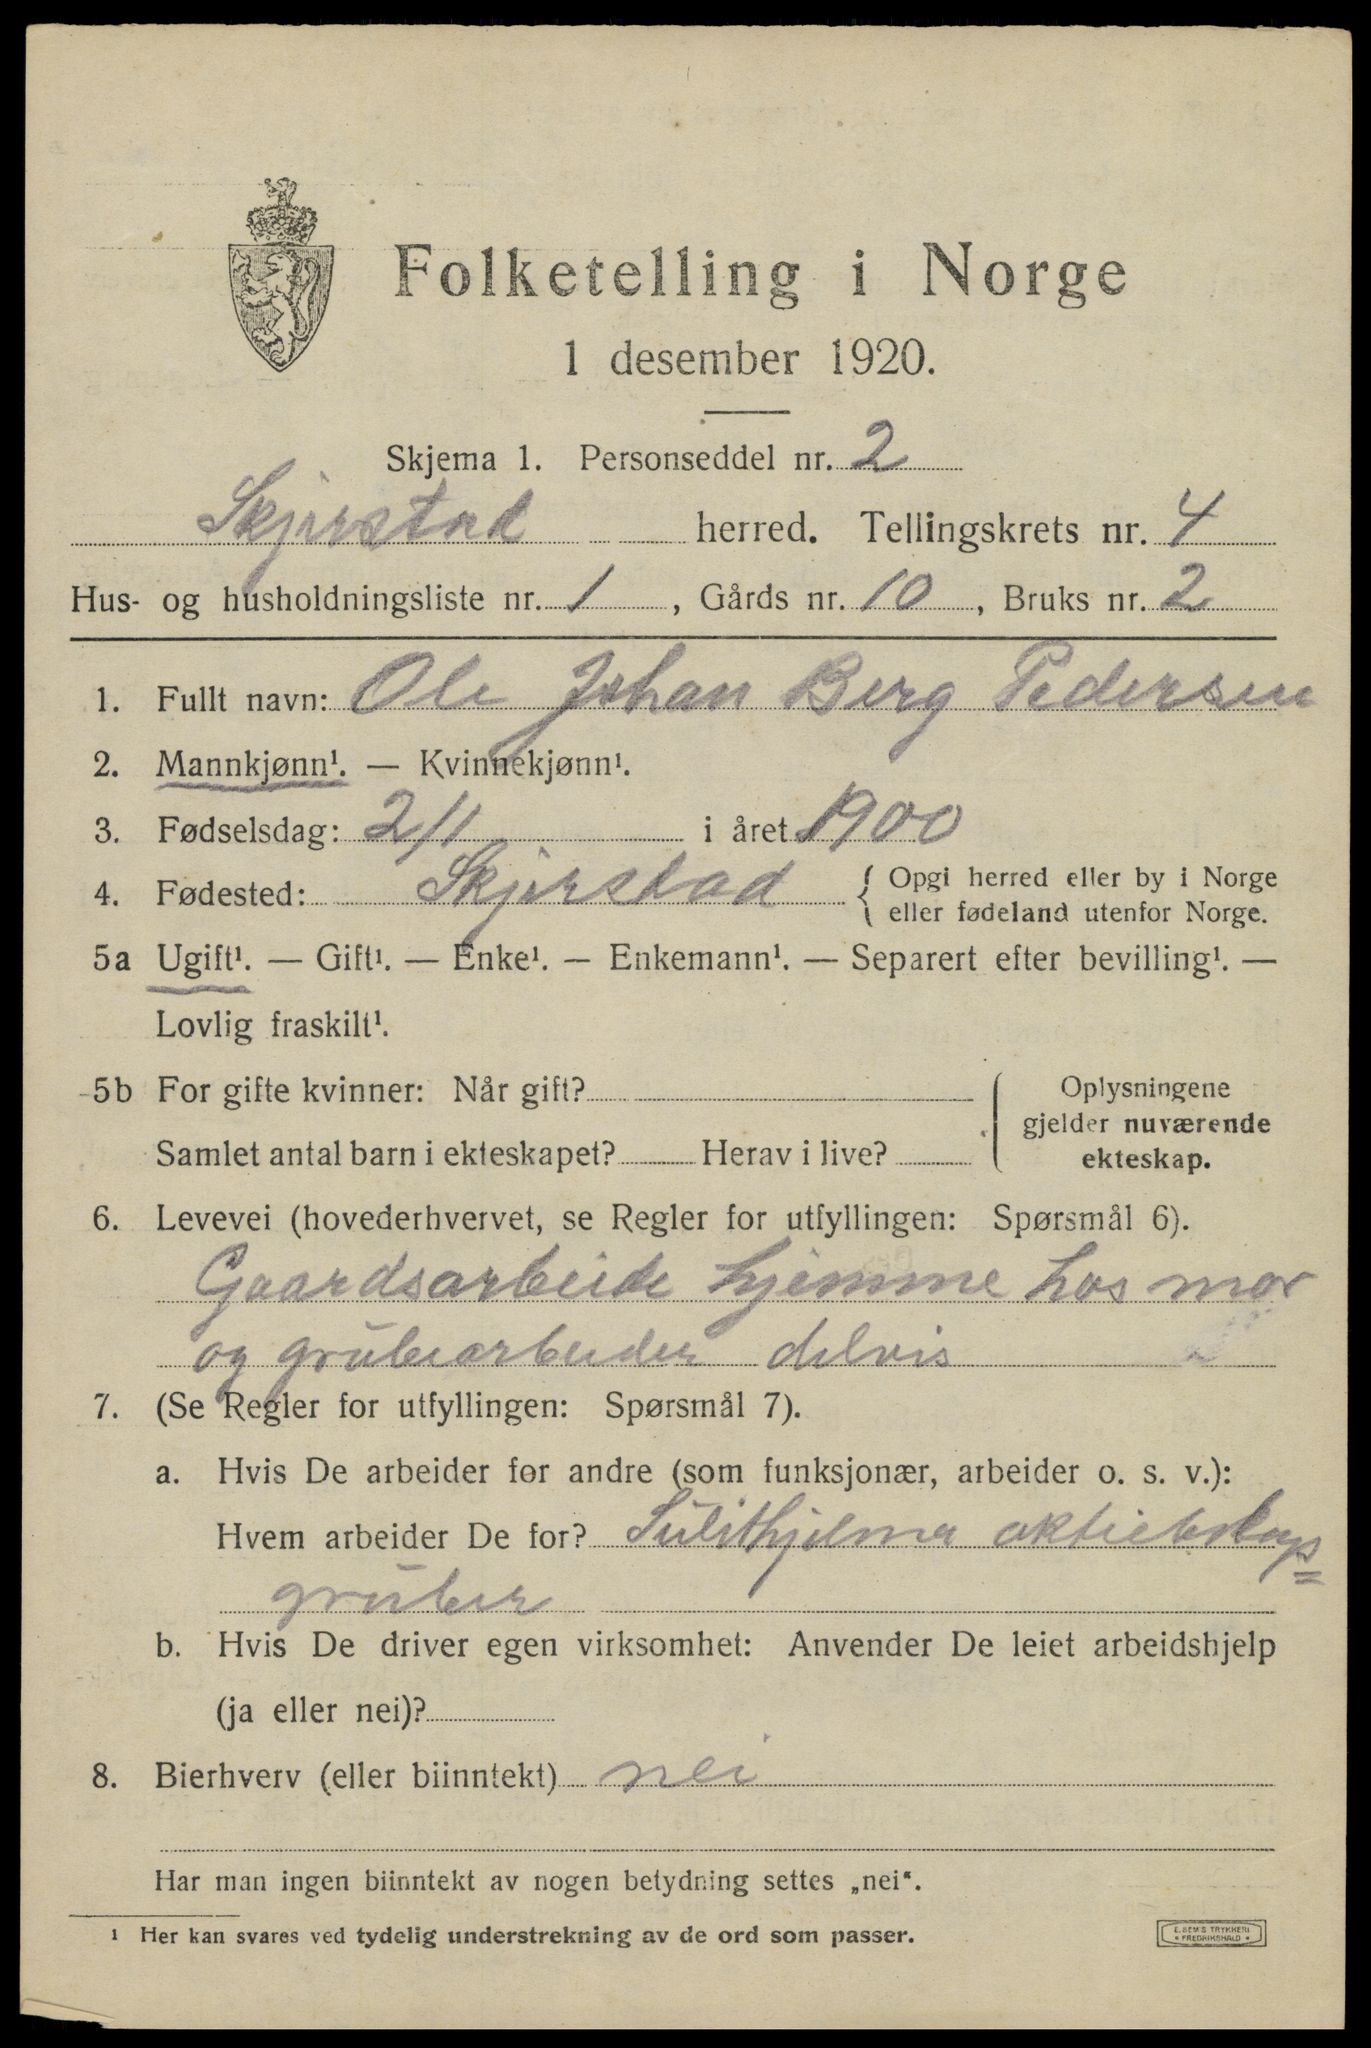 Folketelling i Norge
1 desember 1920.
Skjema 1. Personseddel nr. 2
Skjerstad herred. Tellingskrets nr. 4
Hus- og husholdningsliste nr. 1, Gårds nr. 10, Bruks nr. 2
1. Fullt navn: Ole Johan Berg Pedersen
2. Mannkjønn¹. — Kvinnekjønn¹.
3. Fødselsdag: 2/1 i året 1900
4. Fødested: Skjerstad { Opgi herred eller by i Norge
eller fødeland utenfor Norge.
5a Ugift¹. — Gift¹. — Enke¹. — Enkemann¹. — Separert efter bevilling¹. —
Lovlig fraskilt¹.
5b For gifte kvinner: Når gift?
Samlet antal barn i ekteskapet? Herav i live?
Oplysningene
gjelder nuværende
ekteskap.
6. Levevei (hovederhvervet, se Regler for utfyllingen: Spørsmål 6).
Gaardsarbeide hjemme hos mor
og grubearbeider delvis
7. (Se Regler for utfyllingen: Spørsmål 7).
a. Hvis De arbeider for andre (som funksjonær, arbeider o. s. v.):
Hvem arbeider De for? Sulithjelma aktieselskaps=
gruber
b. Hvis De driver egen virksomhet: Anvender De leiet arbeidshjelp
(ja eller nei)?
8. Bierhverv (eller biinntekt) nei
Har man ingen biinntekt av nogen betydning settes „nei“.
¹ Her kan svares ved tydelig understrekning av de ord som passer.
E. SEM'S TRYKKERI
• FREDRIKSHALD •